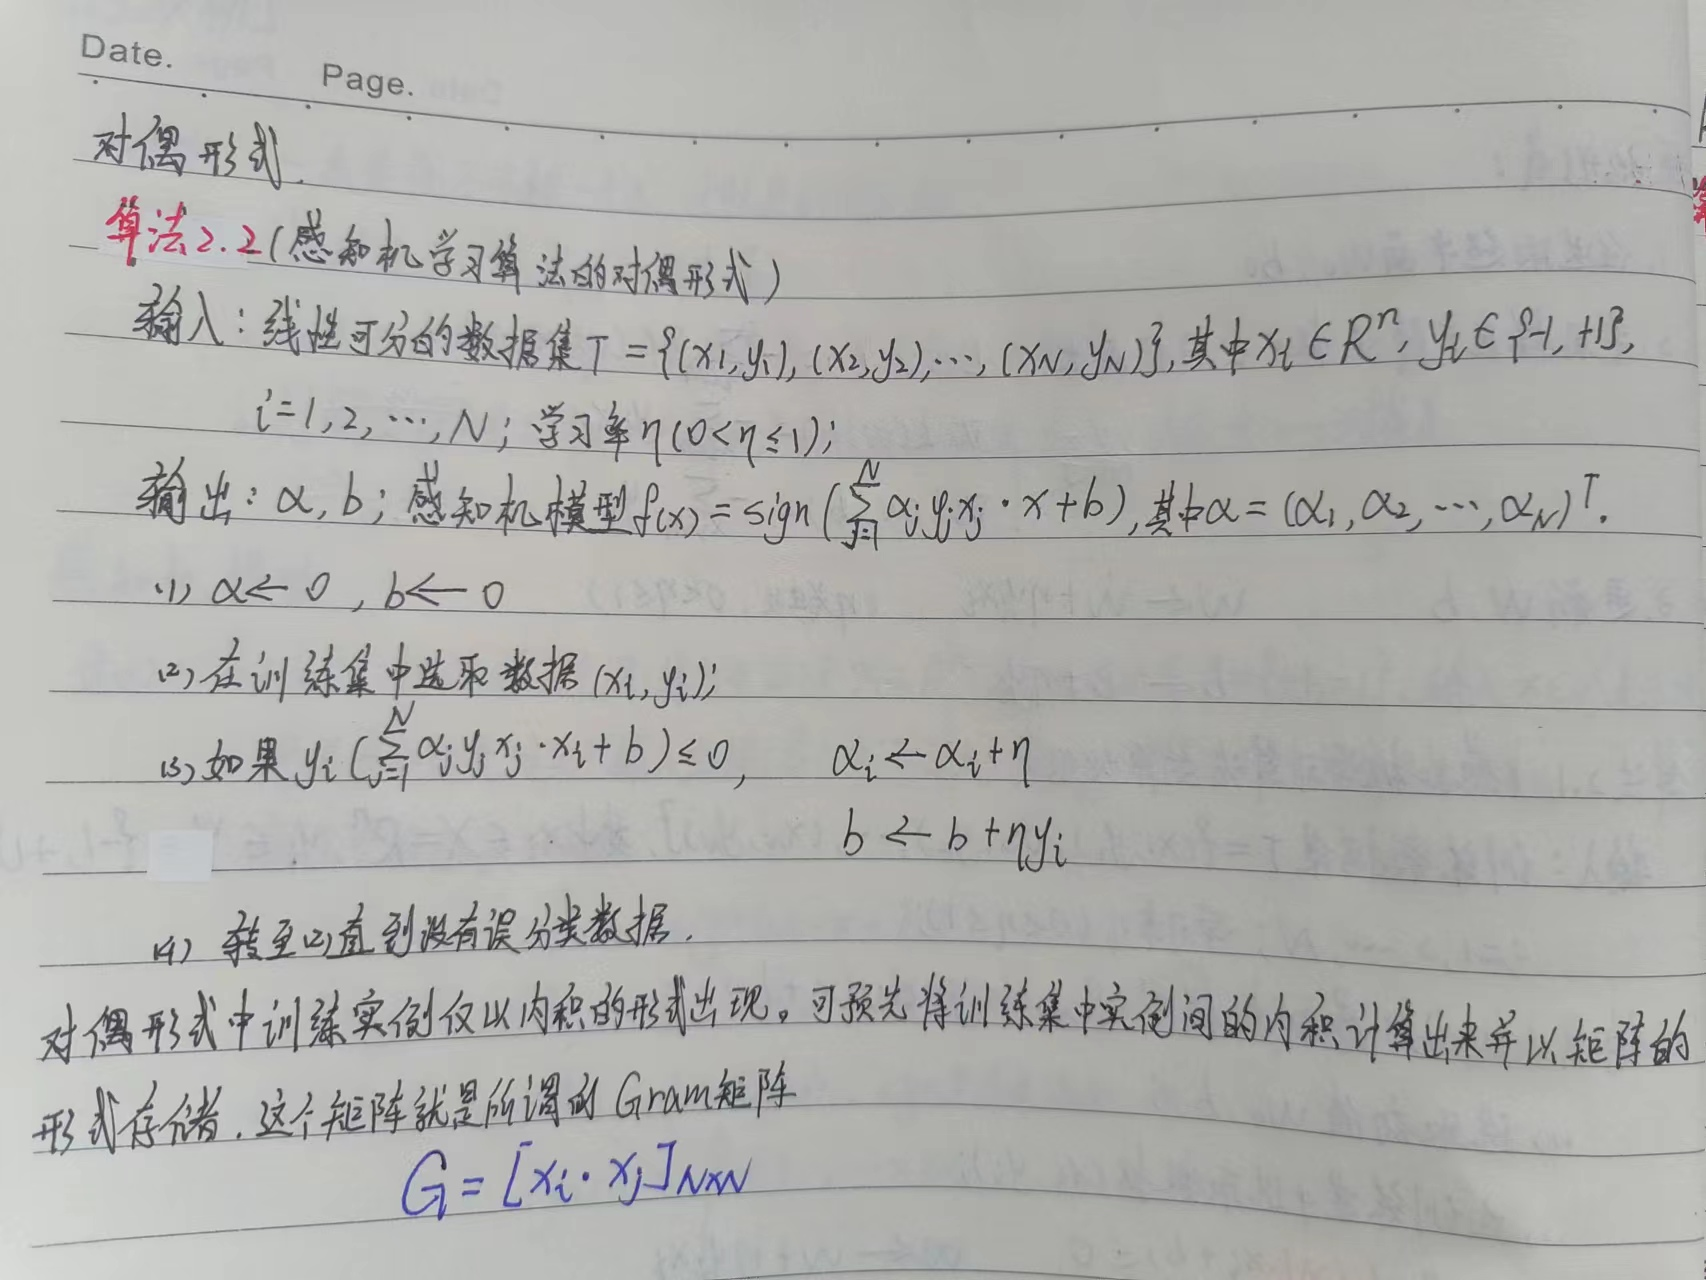 Date.
Page.
对偶形式.
算法2.2(感知机学习算法的对偶形式)
输入:线性可分的数据集T={(x1,y1),(x2,y2),…,(xN,yN)},其中xi∈Rⁿ,yi∈{-1,+1},
i=1,2,…,N;学习率η(0<η≤1);
输出:α,b;感知机模型f(x)=sign(∑_{j=1}^{N} αjyjxj·x+b),其中α=(α1,α2,…,αN)ᵀ.
(1) α←0,b←0
(2) 在训练集中选取数据(xi,yi);
(3) 如果yi(∑_{j=1}^{N} αjyjxj·xi+b)≤0, αi←αi+η
b←b+ηyi
(4) 转至(2)直到没有误分类数据.
对偶形式中训练实例仅以内积的形式出现。可预先将训练集中实例间的内积计算出来并以矩阵的
形式存储.这个矩阵就是所谓的Gram矩阵
G=[xi·xj]N×N